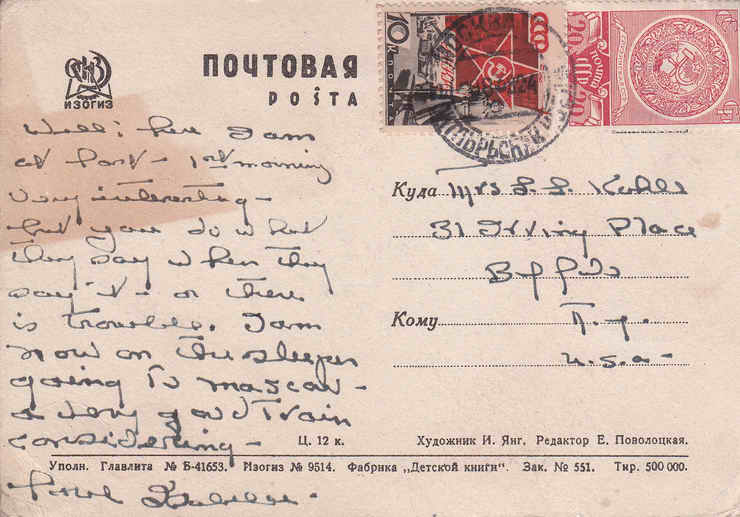 ИЗОГИЗ
ПОЧТОВАЯ
POŝTA
10
СССР
ПОЧТА
20
Well: here I am
at last - 1st morning
very interesting -
but you do what
they say when they
say it - or there
is trouble. I am
now on the sleeper
going to Moscow -
a very good train
considering -
Куда Mrs L. L. Kohls
31 Irving Place
Buffalo
Кому N. Y.
U.S.A -
Ц. 12 к.
Художник И. Янг. Редактор Е. Поволоцкая.
Уполн. Главлита № Б-41653. Изогиз № 9514. Фабрика „Детской книги“. Зак. № 551. Тир. 500 000.